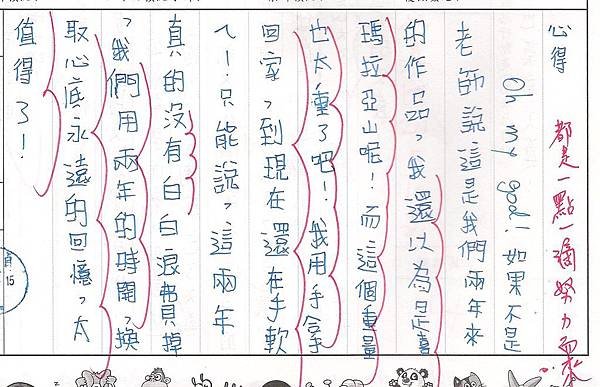 都是一點一滴努力累
心得
Oh my god!如果不是
老師說這是我們兩年來
的作品,我還以為是喜
瑪拉亞山呢!而這個重量
也太重了吧!我用手拿
回家,到現在還在手軟
ㄟ!只能說,這兩年
真的沒有白白浪費掉
,我們用兩年的時間,換
取心底永遠的回憶,太
值得了!
15